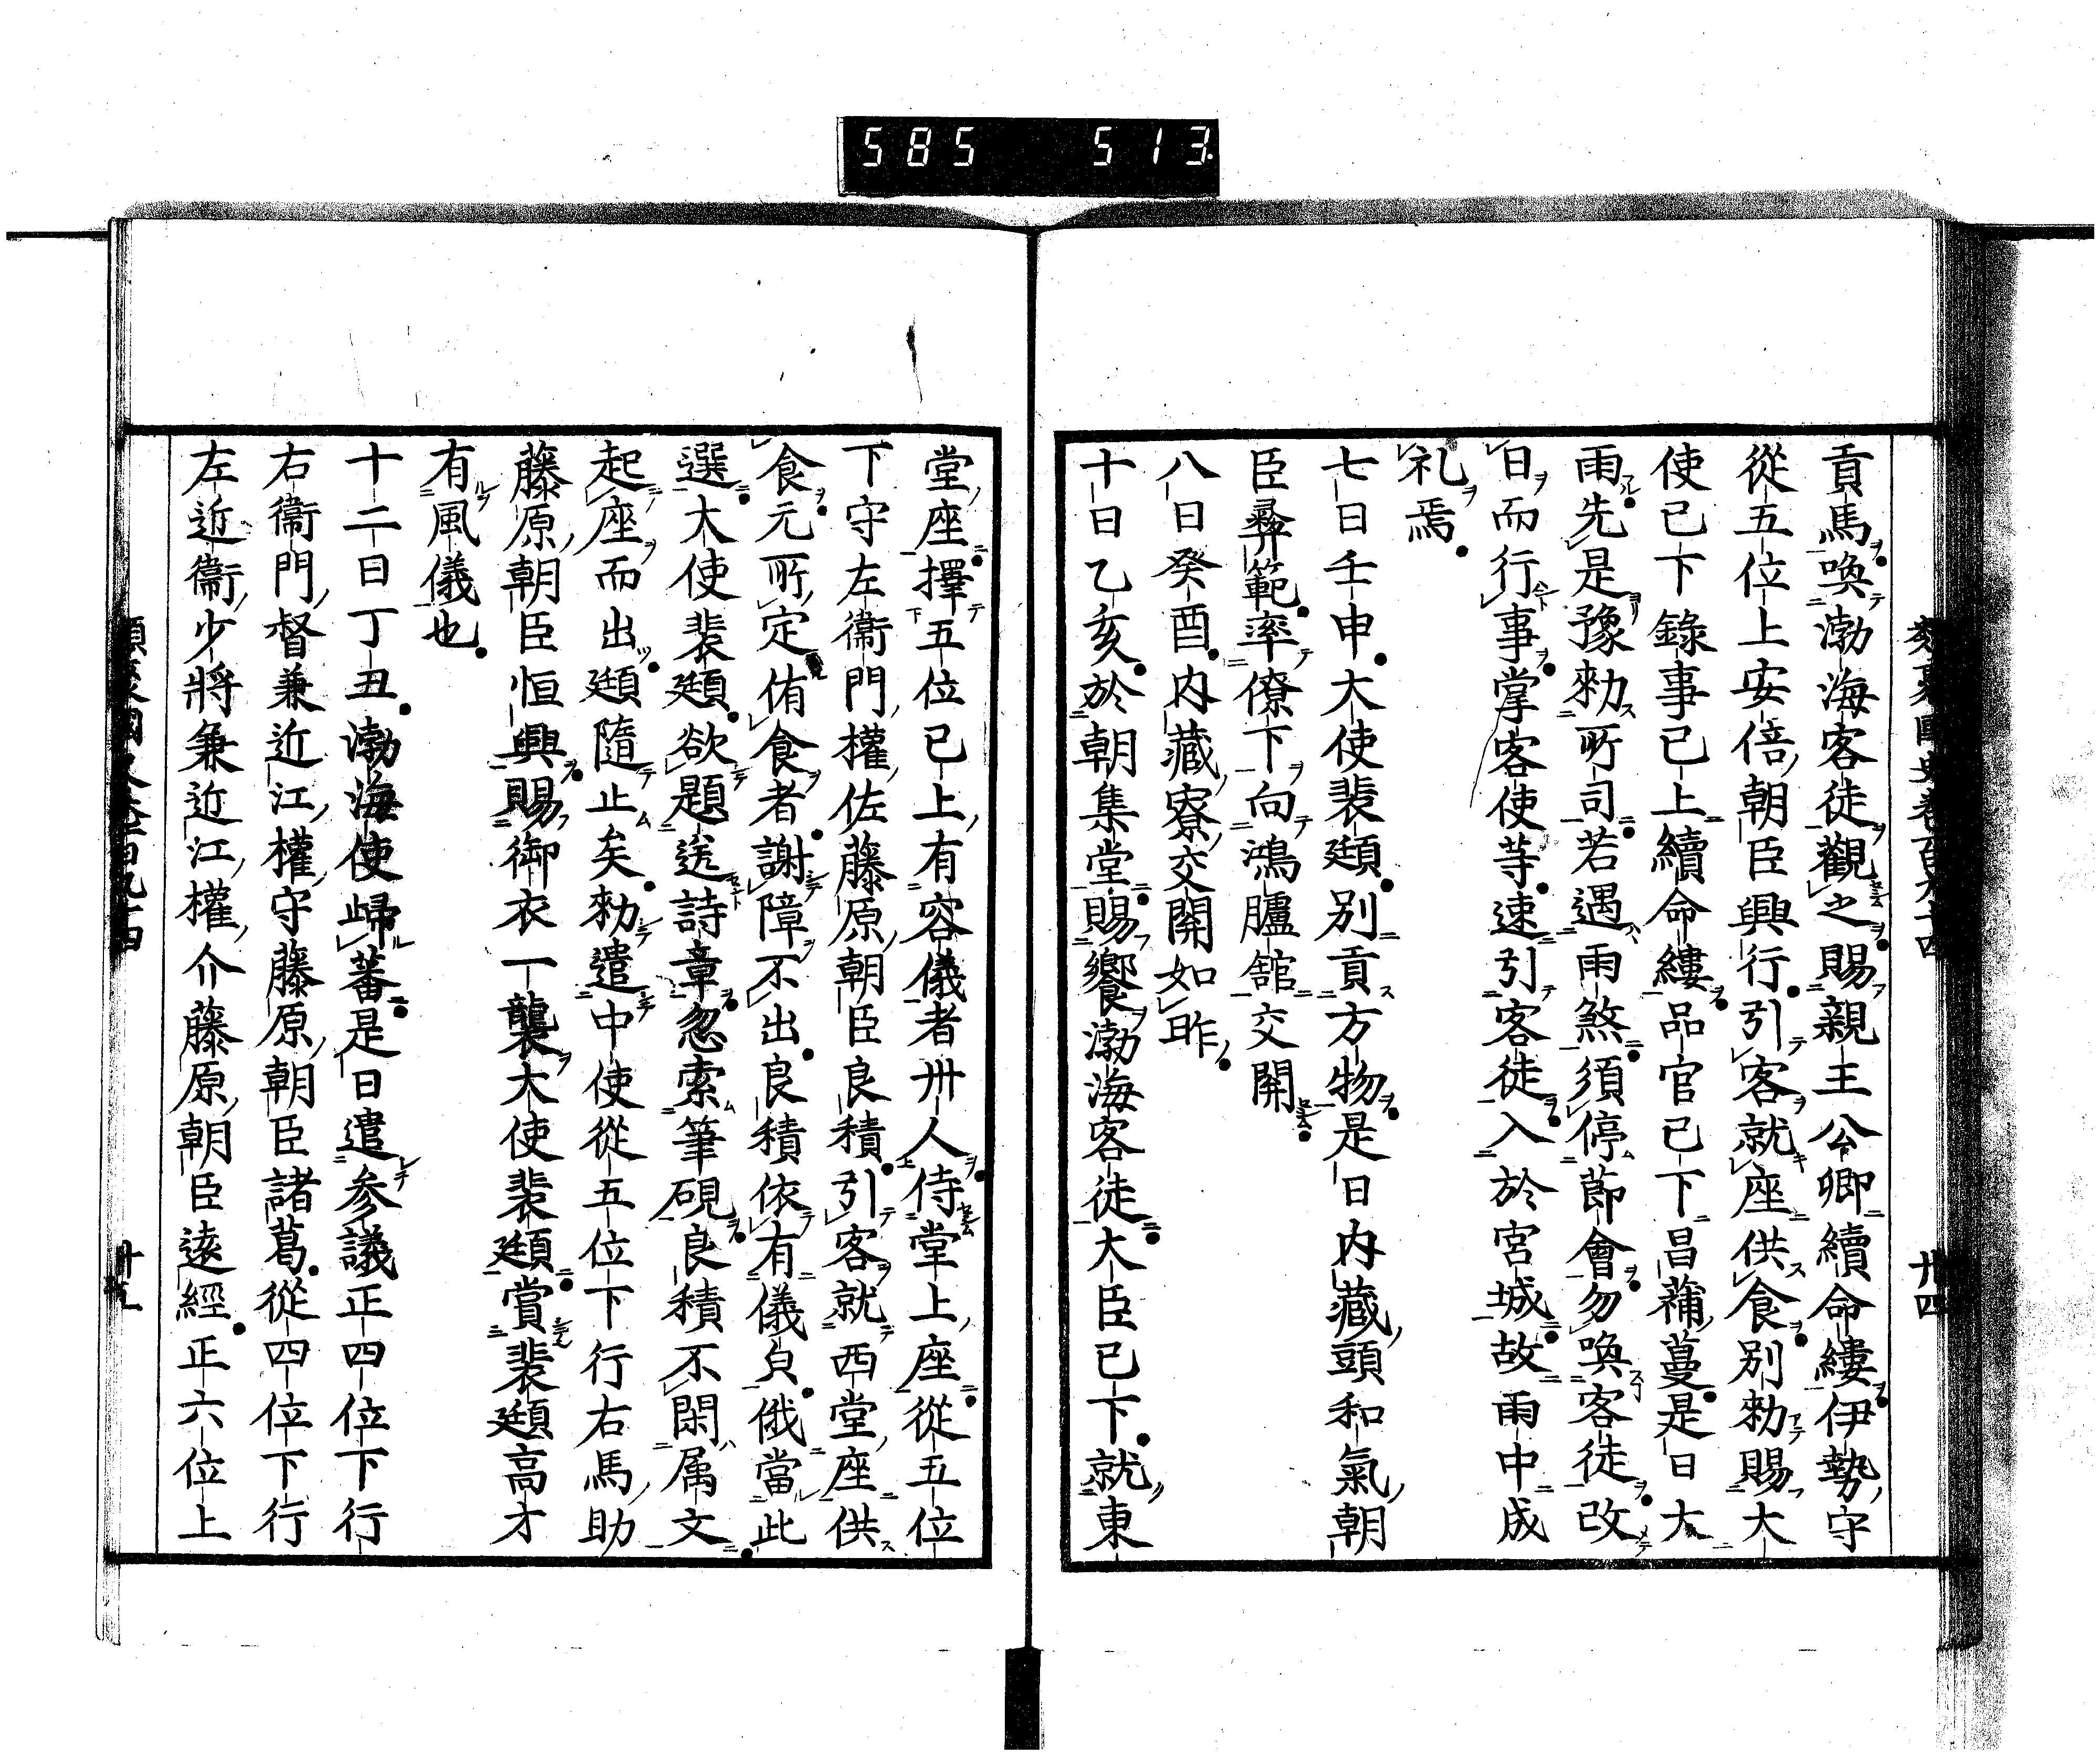 585 513
貢馬喚渤海客徒觀之賜親王公卿續命縷伊勢守
從五位上安倍朝臣興行引客就座供食別勅賜大
使已下錄事已上續命縷品官已下昌蒲蔓是日大
雨先是豫勅所司若遇雨煞須停莭會勿喚客徒改
日而行事掌客使等速引客徒入於宮城故雨中成
礼焉
七日壬申大使裴頲別貢方物是日内藏頭和氣朝
臣彝範率僚下向鴻臚館交關
八日癸酉内藏寮交關如昨
十日乙亥於朝集堂賜饗渤海客徒大臣已下就東
堂座擇五位已上有容儀者卅人侍堂上座從五位
下守左衞門權佐藤原朝臣良積引客就西堂座供
食元所定侑食者謝障不出良積依有儀皃俄當此
選大使裴頲欲題送詩章忽索筆硯良積不閑属文
起座而出頲隨止矣勅遣中使從五位下行右馬助
藤原朝臣恒興賜御衣一襲大使裴頲賞裴頲高才
有風儀也
十二日丁丑渤海使歸蕃是日遣参議正四位下行
右衞門督兼近江權守藤原朝臣諸葛從四位下行
左近衞少將兼近江權介藤原朝臣遠經正六位上